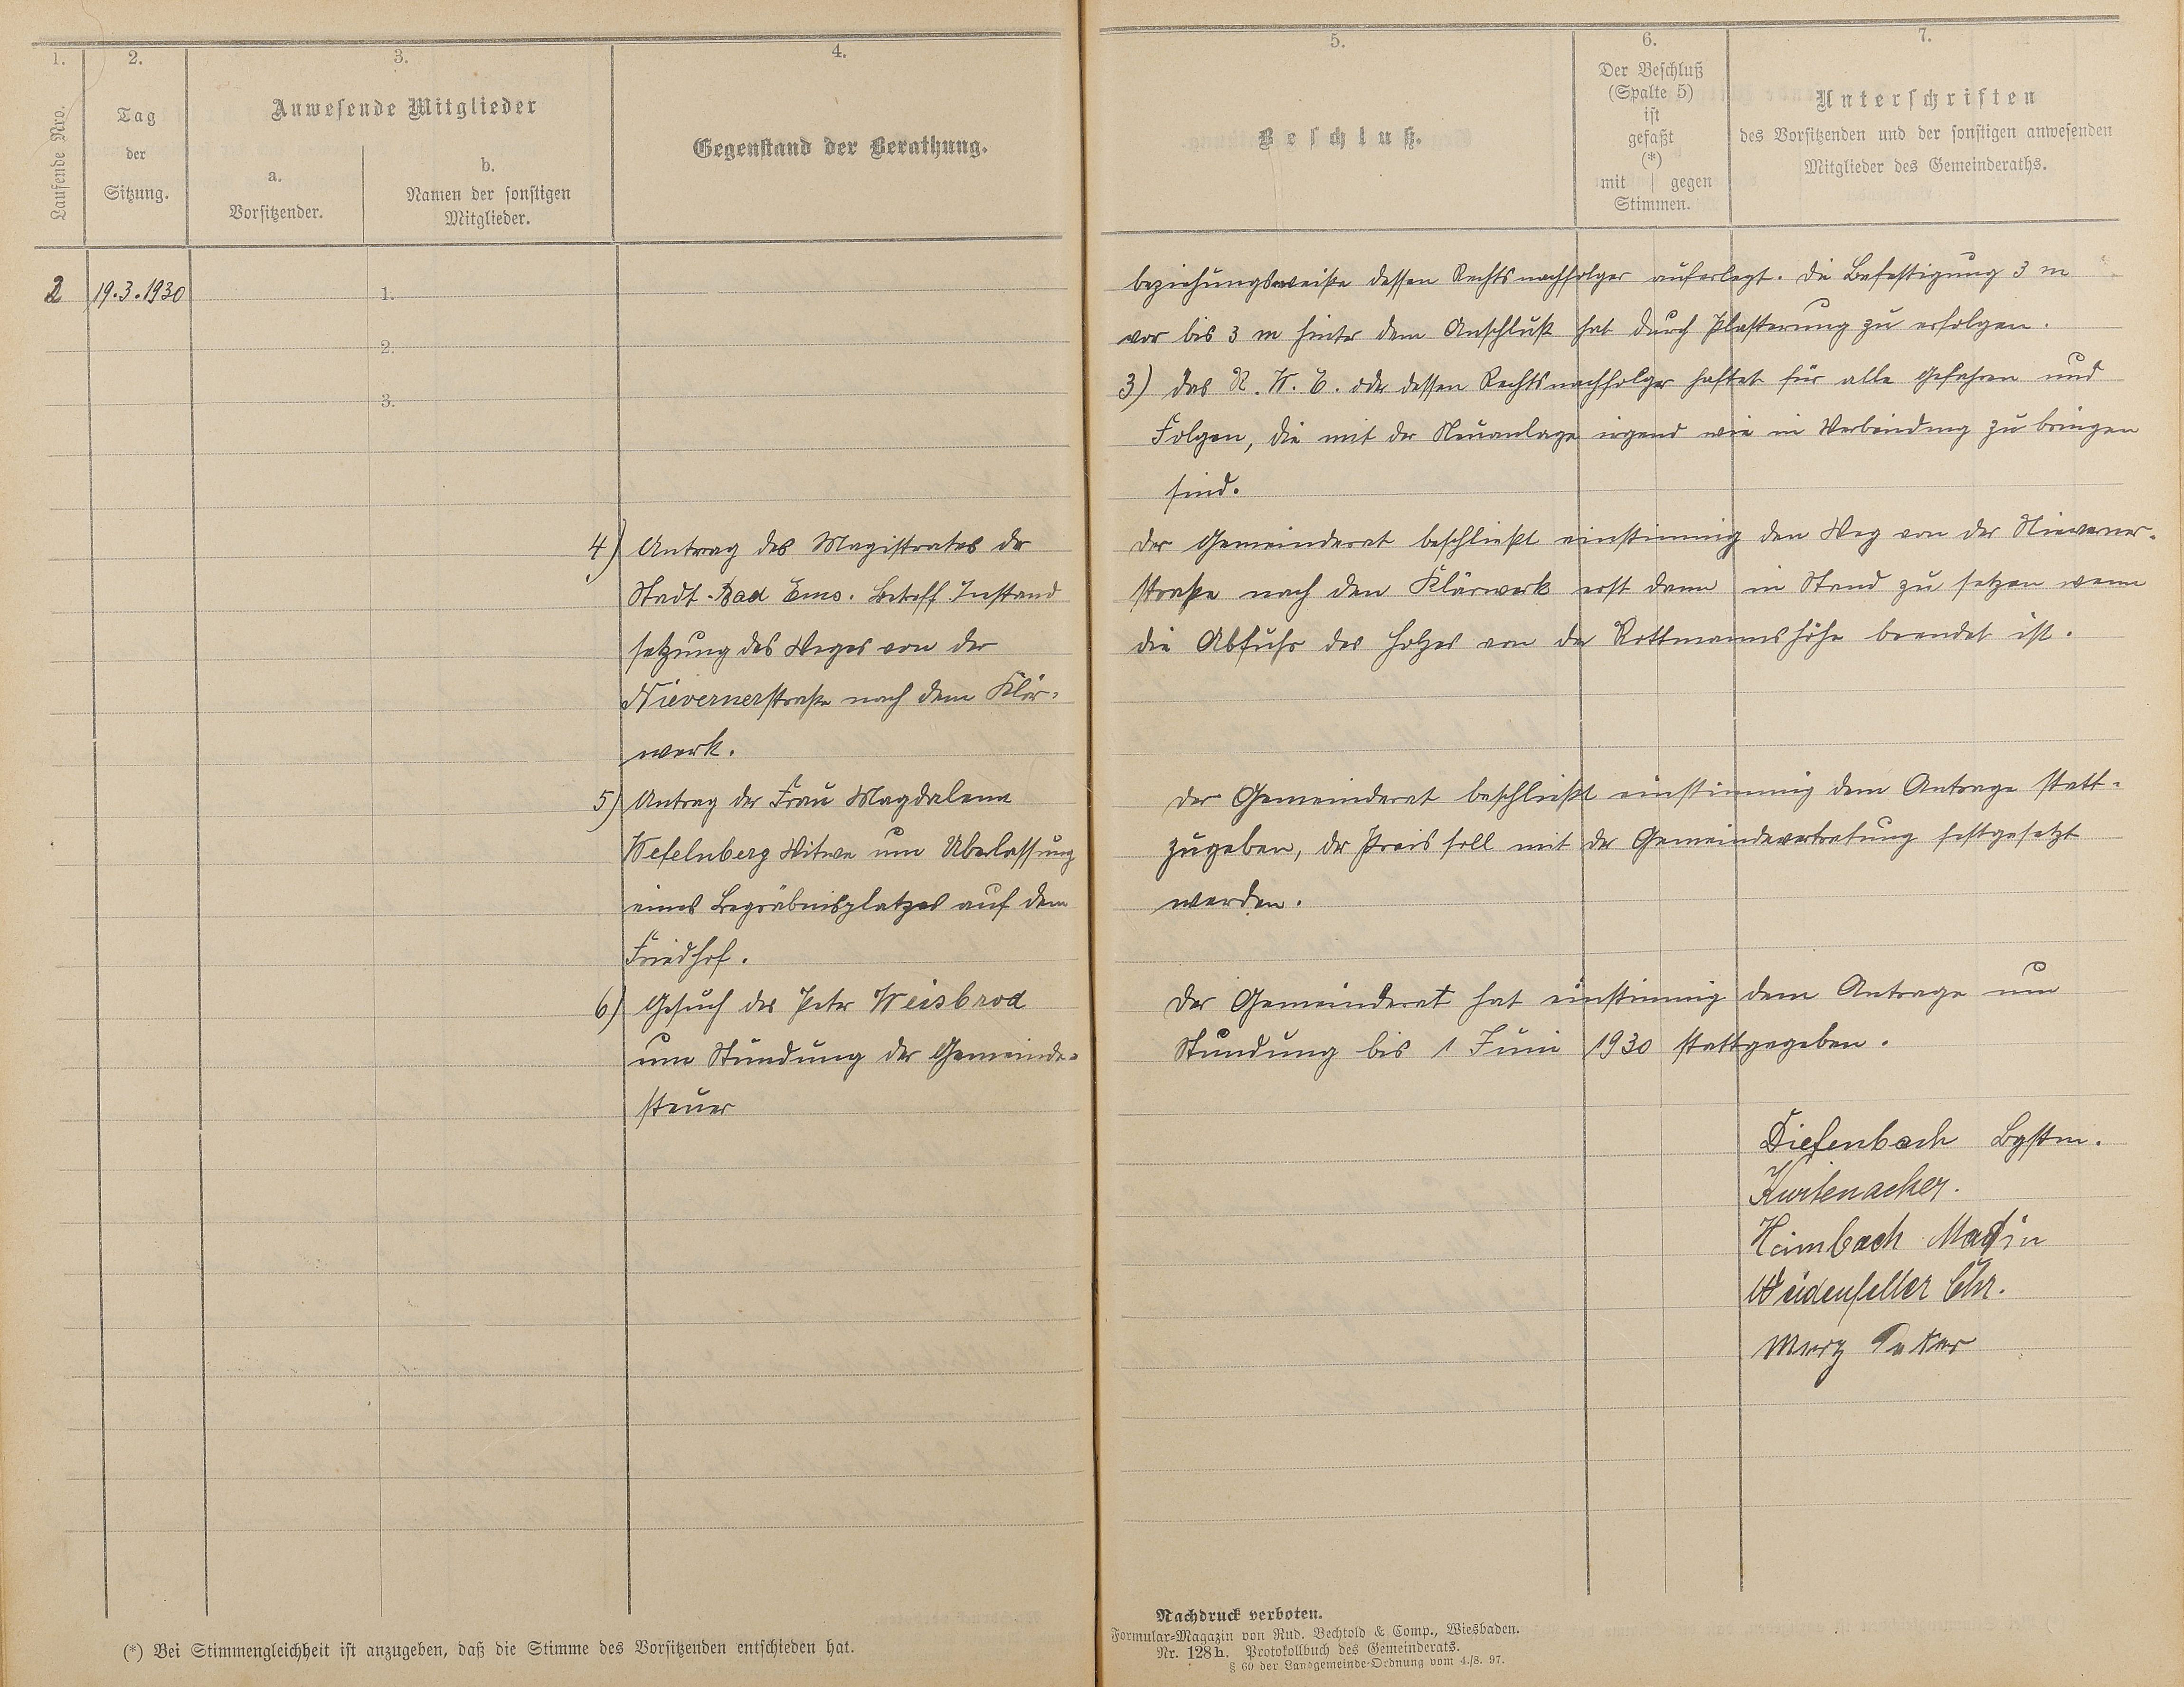 1.
2.
3.
4.
Laufende Nro.
Tag
der
Sitzung.
Anwesende Mitglieder
a.
Vorsitzender.
b.
Namen der sonstigen
Mitglieder.
Gegenstand der Berathung.
2
19.3.1930
1.
2.
3.
4) Antrag des Magistrates der
Stadt Bad Ems. Betreff Instand
setzung des Weges von der
Nievernerstraße nach dem Klär-
werk.
5) Antrag der Frau Magdalena
Wefelnberg Witwe um Überlassung
eines Begräbnisplatzes auf dem
Friedhof.
6) Gesuch des Peter Weisbrod
um Stundung der Gemeinde-
steuer
(*) Bei Stimmengleichheit ist anzugeben, daß die Stimme des Vorsitzenden entschieden hat.
5.
6.
7.
Beschluß.
Der Beschluß
(Spalte 5)
ist
gefaßt
(*)
mit | gegen
Stimmen.
Unterschriften
des Vorsitzenden und der sonstigen anwesenden
Mitglieder des Gemeinderaths.
beziehungsweiße dessen Rechtsnachfolger auferlegt. Die Befestigung 3 m
vor bis 3 m hinter dem Anschluß hat durch Plasterung zu erfolgen.
3) Das R. W. E. oder dessen Rechtsnachfolger haftet für alle Gefahren und
Folgen, die mit der Neuanlage irgend wie in Verbindung zu bringen
sind.
Der Gemeinderat beschließt einstimmig den Weg von der Nieverner-
straße nach den Klärwerk erst dann in Stand zu setzen wenn
die Abfuhr des Holzes von der Rottmannshöhe beendet ist.
Der Gemeinderat beschließt einstimmig dem Antrage statt-
zugeben, der Preis soll mit der Gemeindevertretung festgesetzt
werden.
Der Gemeinderat hat einstimmig dem Antrage um
Stundung bis 1 Juni 1930 stattgegeben.
Diefenbach Bgstm.
Kurtenacker.
Heimbach Martin
Weidenfeller Chr.
Merz Peter
Nachdruck verboten.
Formular-Magazin von Rud. Bechtold & Comp., Wiesbaden.
Nr. 128b. Protokollbuch des Gemeinderats.
§ 60 der Landgemeinde-Ordnung vom 4./8. 97.